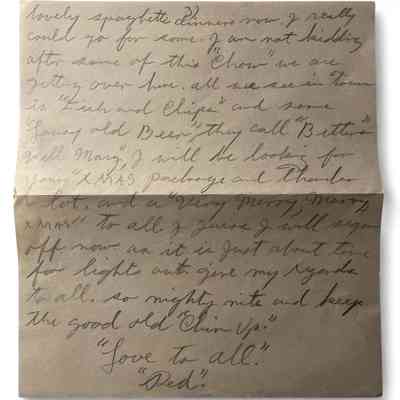 lovely spaghetti dinners now I really
could go for some. I am not kidding
after some of this "Chow" we are
getting over here. all we see in town
is "Fish and Chips" and some
"Lousy old Beer," they call "Bitters"
well Mary, I will be looking for
your "XMAS package and thanks
a lot. and a "Very Merry, Merry
XMAS" to all. I guess I will sign
off now as it is just about time
for lights out. give my regards
to all. so nighty nite and keep
the good old "Chin Up."
"Love to all."
"Red".